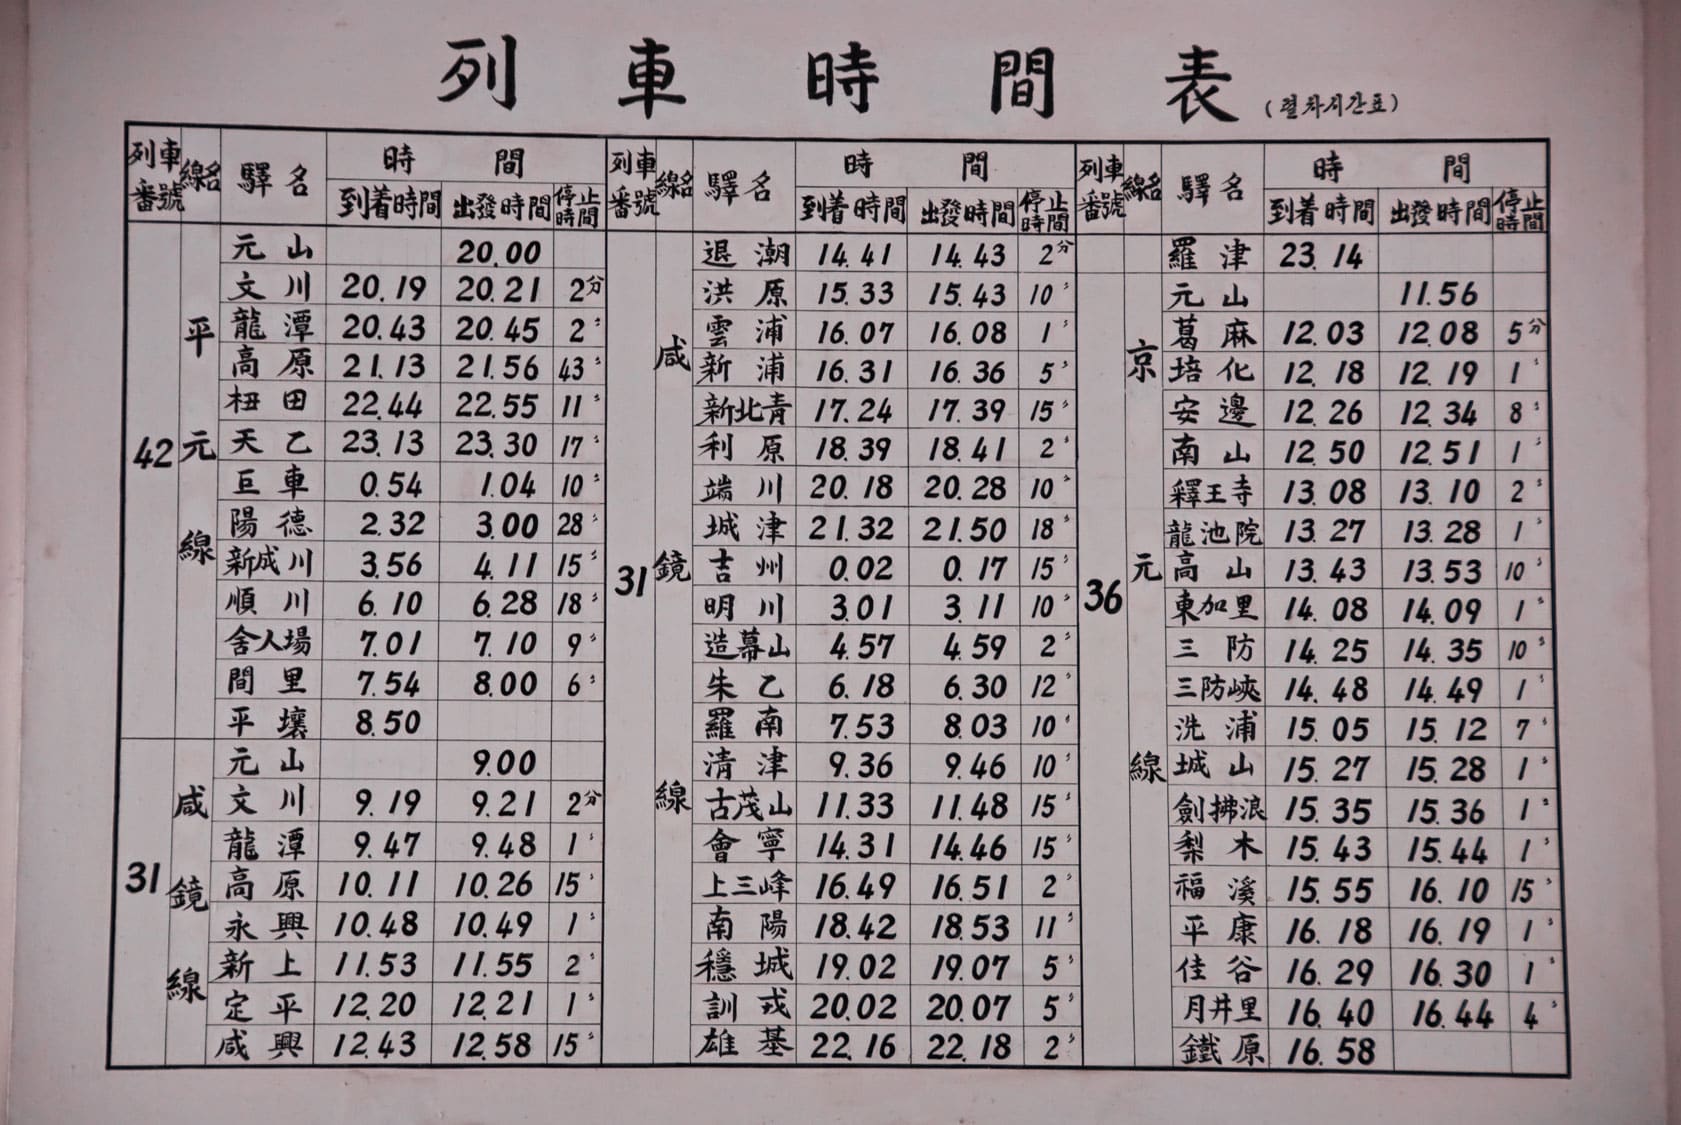 列車時間表 (렬차시간표)
列車番號 線名 驛名 時間 到着時間 出發時間 停止時間
42 平元線
元山 20.00
文川 20.19 20.21 2分
龍潭 20.43 20.45 2〃
高原 21.13 21.56 43〃
杻田 22.44 22.55 11〃
天乙 23.13 23.30 17〃
巨車 0.54 1.04 10〃
陽德 2.32 3.00 28〃
新成川 3.56 4.11 15〃
順川 6.10 6.28 18〃
舍人場 7.01 7.10 9〃
間里 7.54 8.00 6〃
平壤 8.50
31 咸鏡線
元山 9.00
文川 9.19 9.21 2分
龍潭 9.47 9.48 1〃
高原 10.11 10.26 15〃
永興 10.48 10.49 1〃
新上 11.53 11.55 2〃
定平 12.20 12.21 1〃
咸興 12.43 12.58 15〃
列車番號 線名 驛名 時間 到着時間 出發時間 停止時間
31 咸鏡線
退潮 14.41 14.43 2分
洪原 15.33 15.43 10〃
雲浦 16.07 16.08 1〃
新浦 16.31 16.36 5〃
新北青 17.24 17.39 15〃
利原 18.39 18.41 2〃
端川 20.18 20.28 10〃
城津 21.32 21.50 18〃
吉州 0.02 0.17 15〃
明川 3.01 3.11 10〃
造幕山 4.57 4.59 2〃
朱乙 6.18 6.30 12〃
羅南 7.53 8.03 10〃
清津 9.36 9.46 10〃
古茂山 11.33 11.48 15〃
會寧 14.31 14.46 15〃
上三峰 16.49 16.51 2〃
南陽 18.42 18.53 11〃
穩城 19.02 19.07 5〃
訓戎 20.02 20.07 5〃
雄基 22.16 22.18 2〃
列車番號 線名 驛名 時間 到着時間 出發時間 停止時間
羅津 23.14
36 京元線
元山 11.56
葛麻 12.03 12.08 5分
培化 12.18 12.19 1〃
安邊 12.26 12.34 8〃
南山 12.50 12.51 1〃
釋王寺 13.08 13.10 2〃
龍池院 13.27 13.28 1〃
高山 13.43 13.53 10〃
東加里 14.08 14.09 1〃
三防 14.25 14.35 10〃
三防峽 14.48 14.49 1〃
洗浦 15.05 15.12 7〃
城山 15.27 15.28 1〃
劍拂浪 15.35 15.36 1〃
梨木 15.43 15.44 1〃
福溪 15.55 16.10 15〃
平康 16.18 16.19 1〃
佳谷 16.29 16.30 1〃
月井里 16.40 16.44 4〃
鐵原 16.58